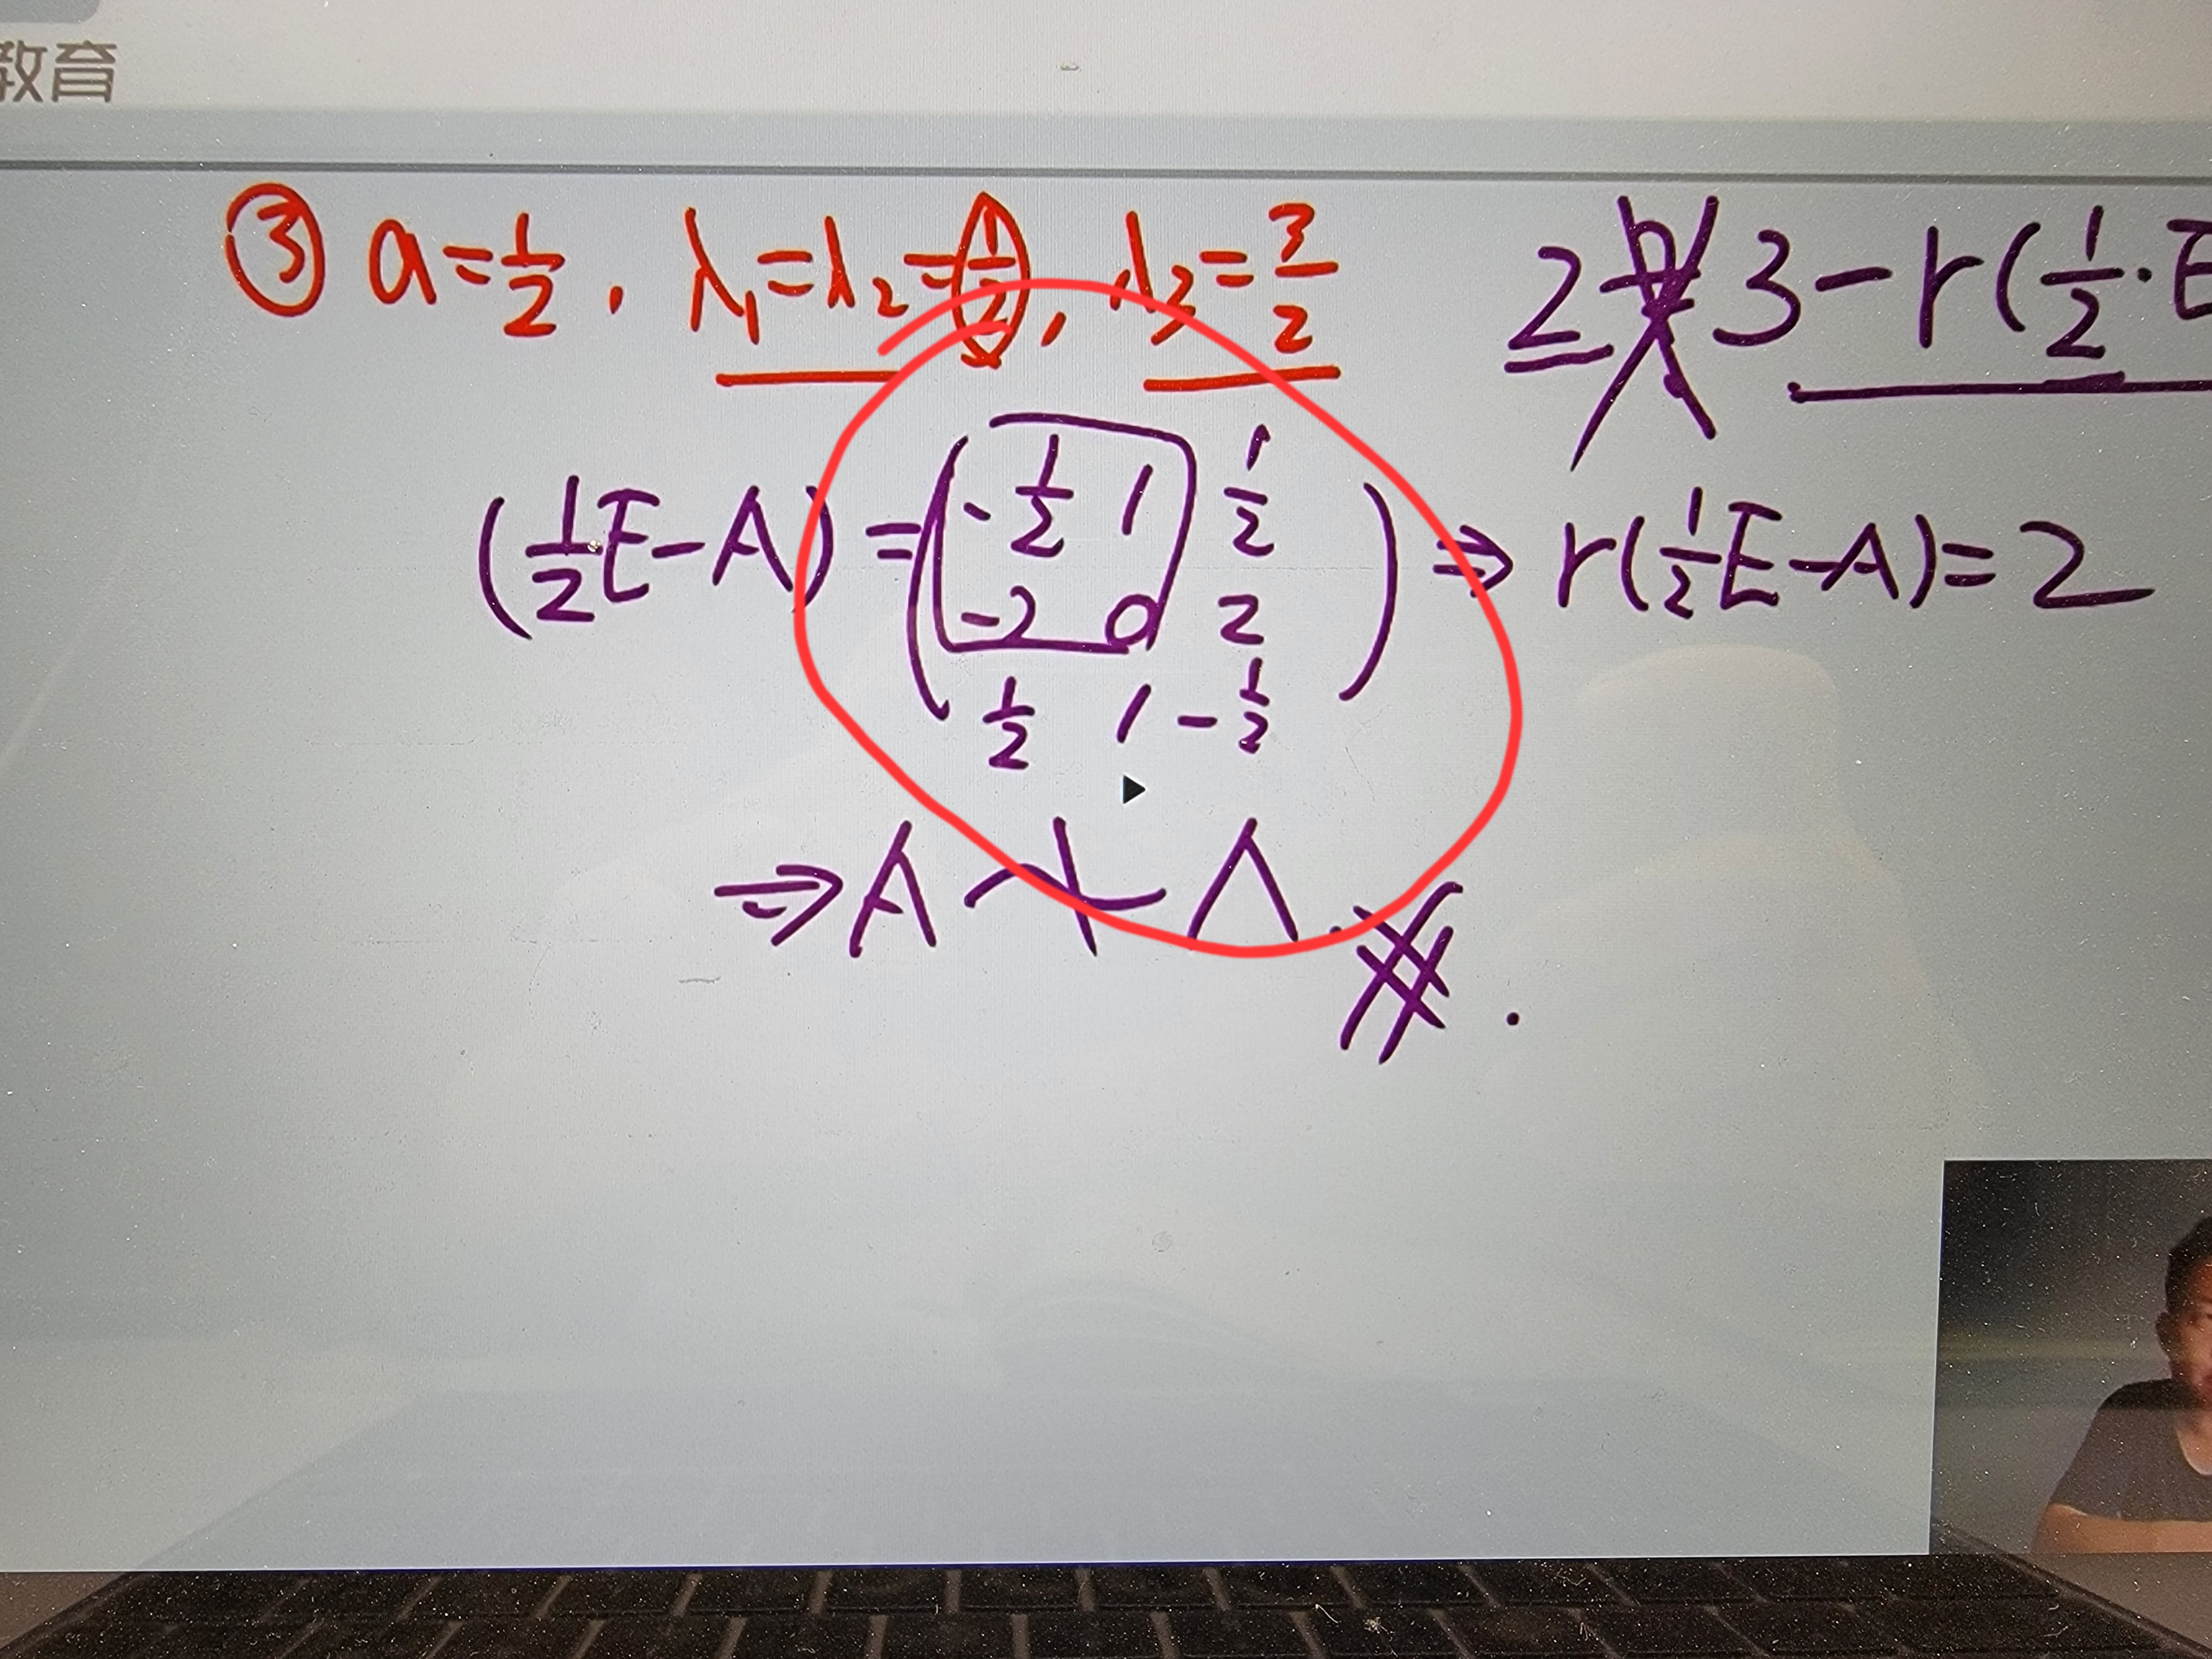 教育
③ a=1/2, λ₁=λ₂=1/2, λ₃=3/2
3-r(1/2·E
(1/2E-A)=(-1/2 1 1/2
-2 0 2
1/2 1 -1/2) ⇒ r(1/2E-A)=2
⇒A≁Λ.